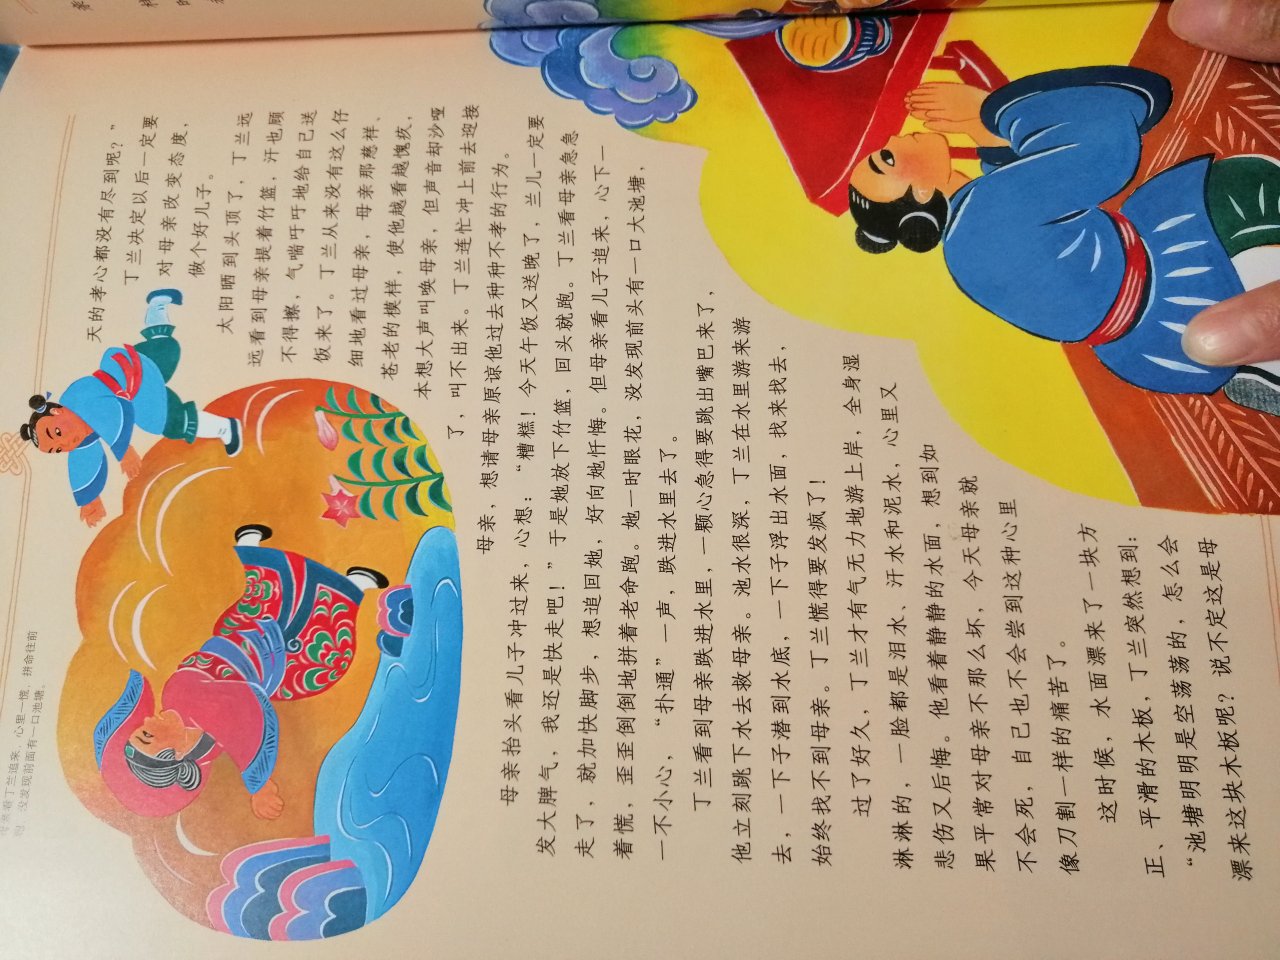 天的孝心都没有尽到呢？”
丁兰决定以后一定要
对母亲改变态度，
做个好儿子。
太阳晒到头顶了，丁兰远
远看到母亲提着竹篮，汗也顾
不得擦，气喘吁吁地给自己送
饭来了。丁兰从来没有这么仔
细地看过母亲，母亲那慈祥、
苍老的模样，使他越看越愧疚，
本想大声叫唤母亲，但声音却沙哑
了，叫不出来。丁兰连忙冲上前去迎接
母亲，想请母亲原谅他过去种种不孝的行为。
母亲抬头看儿子冲过来，心想：“糟糕！今天午饭又送晚了，兰儿一定要
发大脾气，我还是快走吧！”于是她放下竹篮，回头就跑。丁兰看母亲急急
走了，就加快脚步，想追回她，好向她忏悔。但母亲看儿子追来，心下一
着慌，歪歪倒倒地拼着老命跑。她一时眼花，没发现前头有一口大池塘，
一不小心，“扑通”一声，跌进水里去了。
丁兰看到母亲跌进水里，一颗心急得要跳出嘴巴来了，
他立刻跳下水去救母亲。池水很深，丁兰在水里游来游
去，一下子潜到水底，一下子浮出水面，找来找去，
始终找不到母亲。丁兰慌得要发疯了！
过了好久，丁兰才有气无力地游上岸，全身湿
淋淋的，一脸都是泪水、汗水和泥水，心里又
悲伤又后悔。他看着静静的水面，想到如
果平常对母亲不那么坏，今天母亲就
不会死，自己也不会尝到这种心里
像刀割一样的痛苦了。
这时候，水面漂来了一块方
正、平滑的木板，丁兰突然想到：
“池塘明明是空荡荡的，怎么会
漂来这块木板呢？说不定这是母
母亲看丁兰追来，心里一慌，拼命往前
跑，没发现前面有一口池塘。